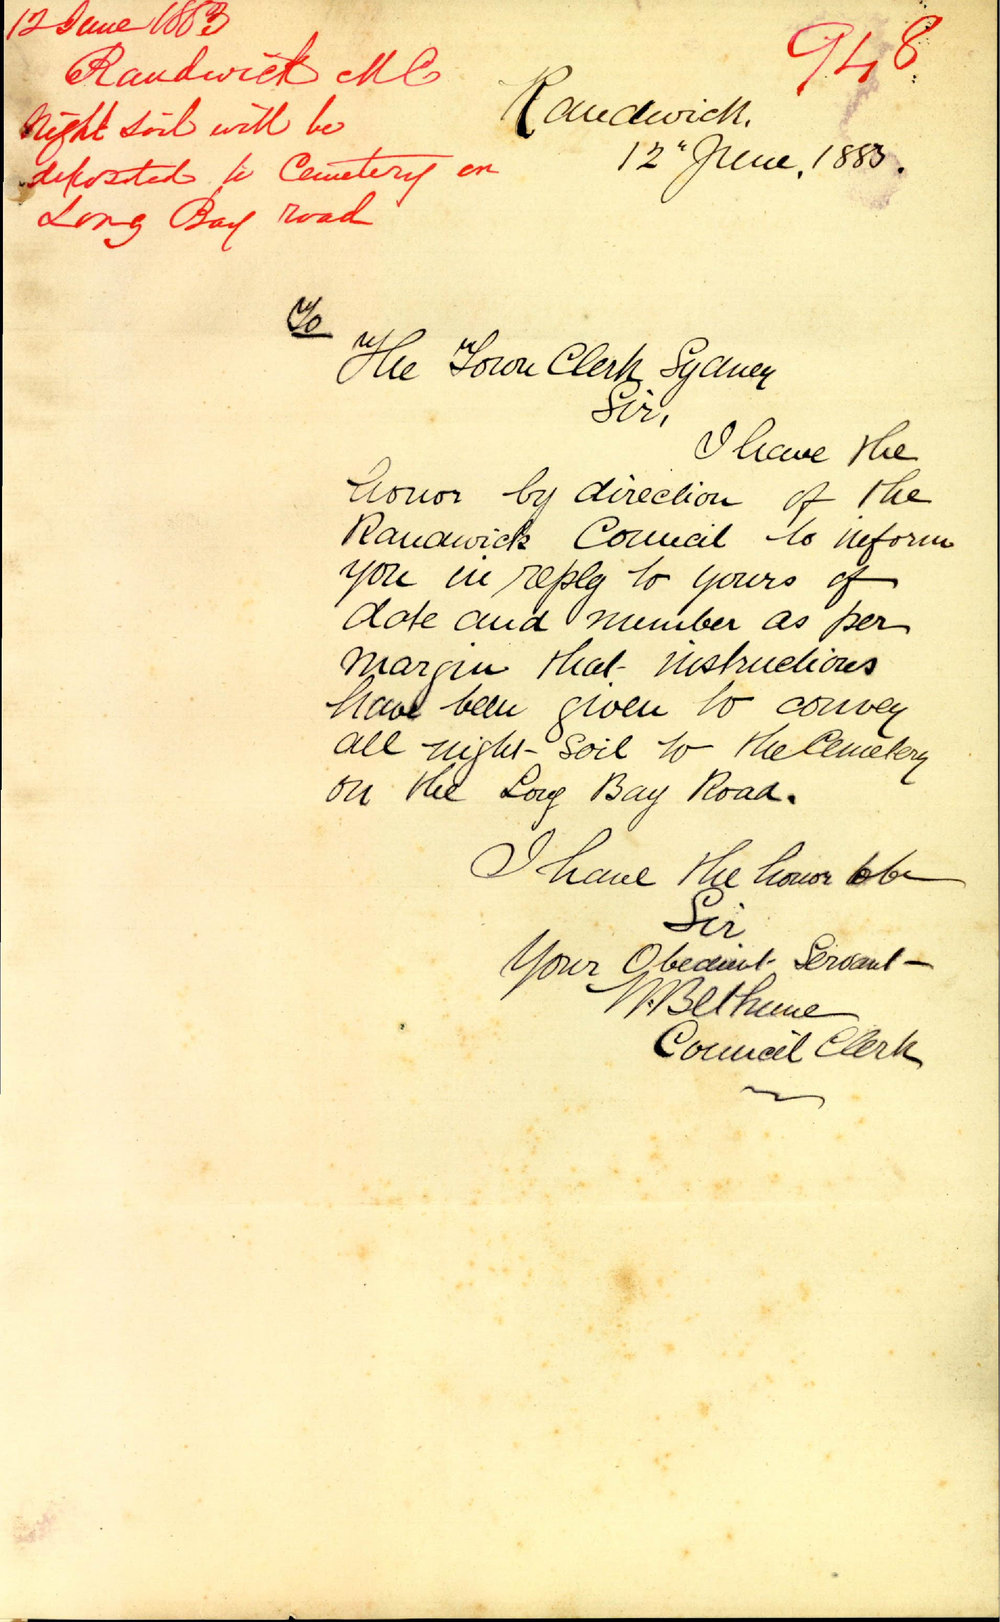 12 June 1883
Randwick M C
Night soil will be
deposited in Cemetery on
Long Bay road
948
Randwick.
12" June, 1883.
To
The Town Clerk Sydney
Sir,
I have the
honor by direction of the
Randwick Council to inform
you in reply to yours of
date and number as per
margin that instructions
have been given to convey
all night-soil to the Cemetery
on the Long Bay Road.
I have the honor to be
Sir
Your Obedient Servant
W. Bethune
Council Clerk